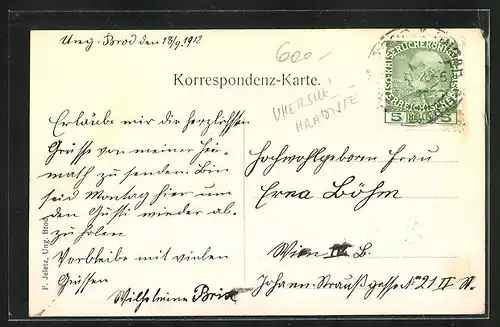 Ung. Brod den 18/9. 1912
600.-
Korrespondenz-Karte.
UHERSKE
HRADISTE
5 5
Erlaube mir die herzlichsten
Grüsse von meiner Hei-
math zu senden. Bin
seid Montag hier um
den Gusti wieder ab-
zu holen
Verbleibe mit vielen
Grüssen
Wilhelmine Brix
Hochwohlgeboren Frau
Erna Böhm
Wien B.
Johann-Straußgasse No 21 II St.
F. Jeletz, Ung. Brod